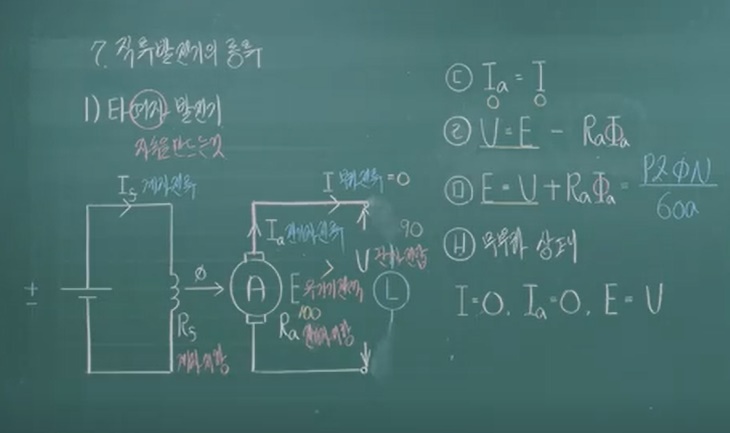 7. 직류발전기의 종류
1) 타여자 발전기
자속을 만드는것
If 계자전류
I 부하전류 = 0
Ia 전기자전류
90
V 단자전압
+
-
ϕ
A
E 유기기전력
100
L
Rf
계자저항
Ra 전기자저항
ㄷ Ia = I
0 0
ㄹ V = E - RaIa
ㅁ E = V + RaIa = PZϕN
60a
ㅂ 무부하 상태
I=0, Ia=0, E = V